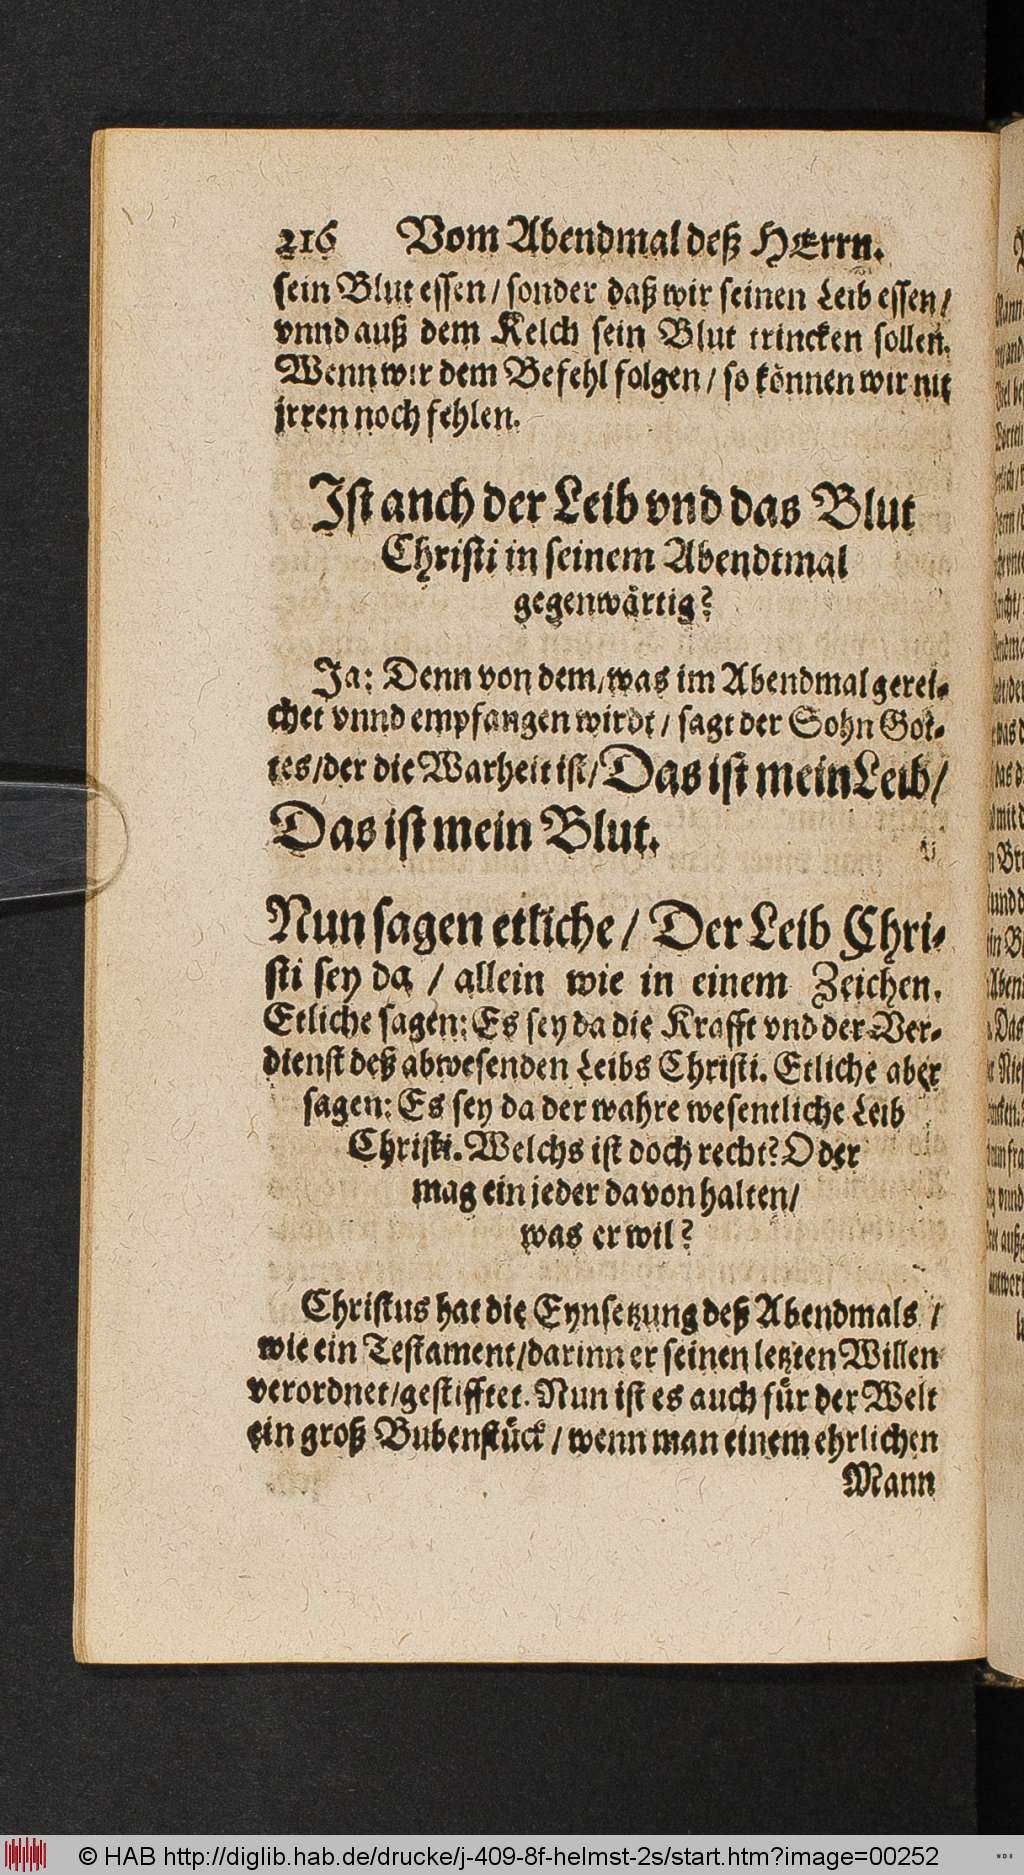 216 Vom Abendmal deß HErrn.
sein Blut essen / sonder daß wir seinen Leib essen /
vnnd auß dem Kelch sein Blut trincken sollen.
Wenn wir dem Befehl folgen / so können wir nit
jrren noch fehlen.
Ist anch der Leib vnd das Blut
Christi in seinem Abendtmal
gegenwärtig?
Ja: Denn von dem / was im Abendmal gerei-
chet vnnd empfangen wirdt / sagt der Sohn Got-
tes / der die Warheit ist / Das ist mein Leib /
Das ist mein Blut.
Nun sagen etliche / Der Leib Chri-
sti sey da / allein wie in einem Zeichen.
Etliche sagen: Es sey da die Krafft vnd der Ver-
dienst deß abwesenden Leibs Christi. Etliche aber
sagen: Es sey da der wahre wesentliche Leib
Christi. Welchs ist doch recht? Oder
mag ein jeder davon halten /
was er wil?
Christus hat die Eynsetzung deß Abendmals /
wie ein Testament / darinn er seinen letzten Willen
verordnet / gestifftet. Nun ist es auch für der Welt
ein groß Bubenstück / wenn man einem ehrlichen
Mann
© HAB http://diglib.hab.de/drucke/j-409-8f-helmst-2s/start.htm?image=00252